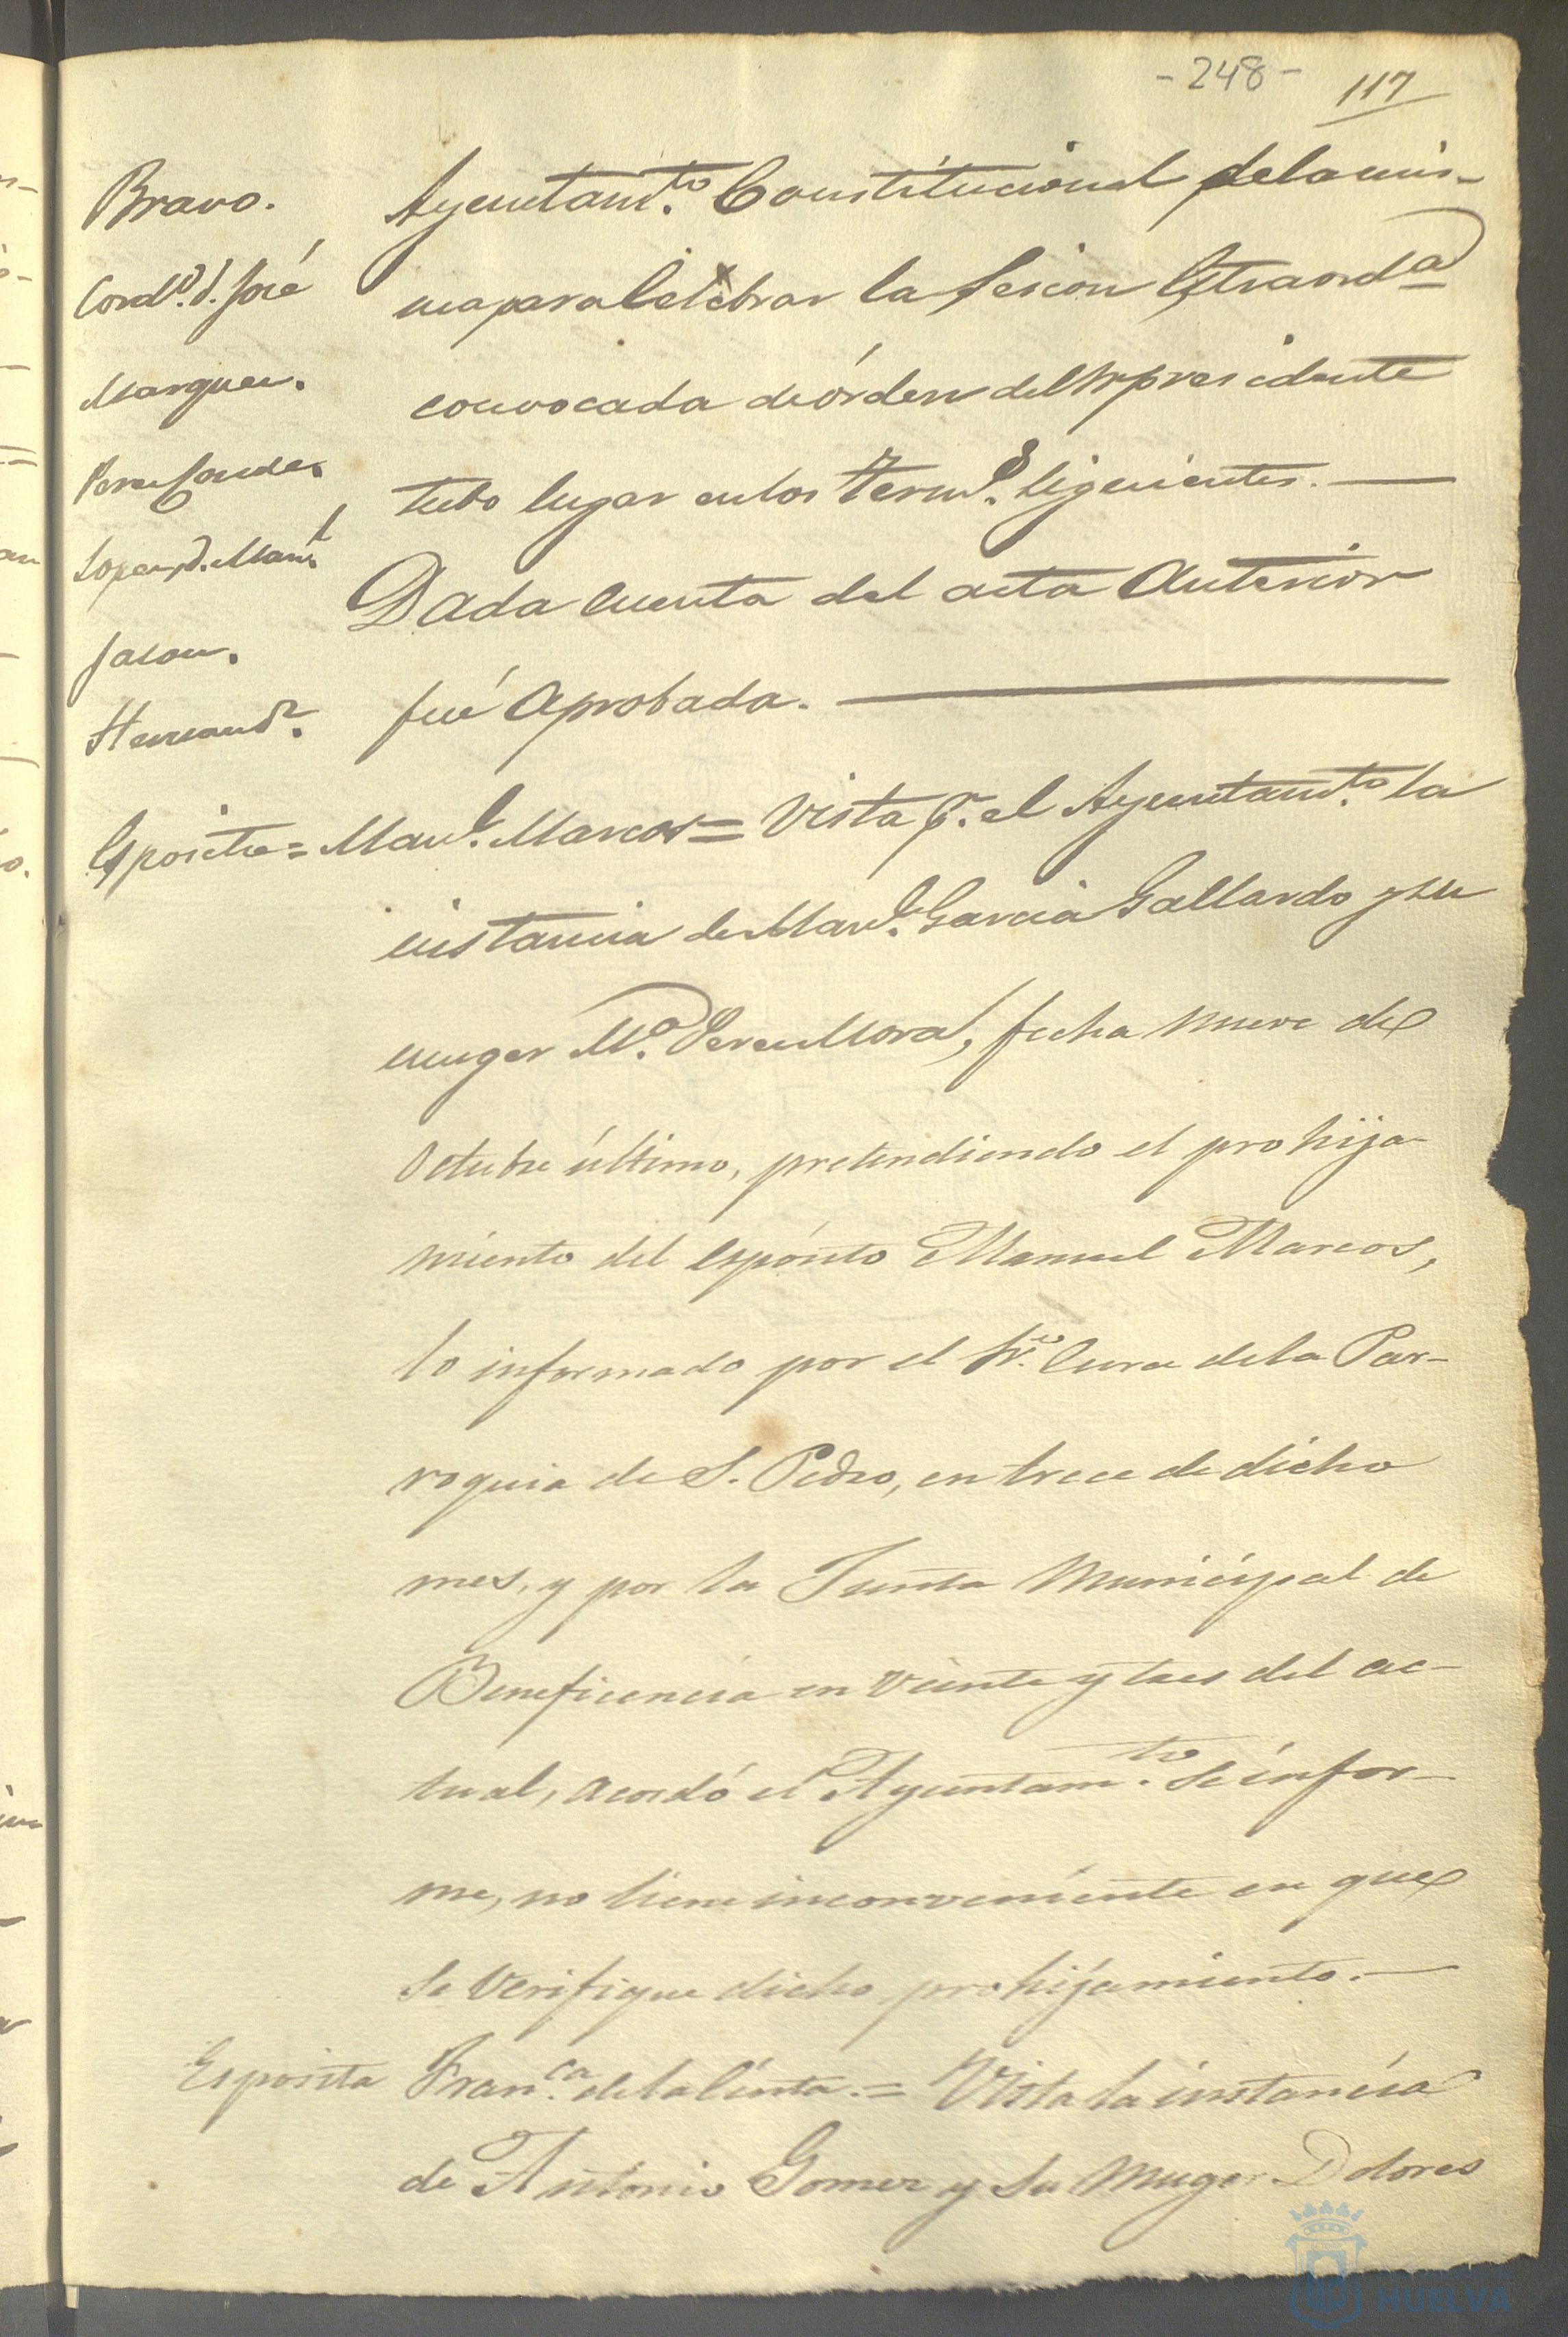 - 248 -
117
Bravo.
Cord.º d. José
Marquez.
Perez Conde.
Lopez, d. Man.l
Jacon.
Hernand.z
Ayuntam.to Constitucional de la mis-
ma para Celebrar la Sesion Estraord.a
convocada de órden del Sr presidente
tubo lugar en los term.s Siguientes.
Dada Cuenta del acta Anterior
fué Aprobada.
Esposito = Man.l Marcos = Vista p.r el Ayuntam.to la
instancia de Man.l Garcia Gallardo y su
muger M.a Perez Mora, fecha nueve de
Octubre último, pretendiendo el prohija-
miento del Espósito Manuel Marcos,
lo informado por el Cura de la Par-
roquia de S. Pedro, en trece de dicho
mes, y por la Junta Municipal de
Beneficencia en Veinte y tres del ac-
tual, Acordó el Ayuntam.to Se infor-
me, no tiene inconveniente en que
Se Verifique dicho prohijamiento.
Esposita Fran.ca de la Cinta. = Vista la instancia
de Antonio Gomez y Su Muger Dolores
HUELVA